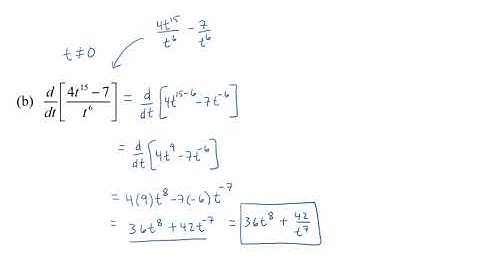 4t¹⁵/t⁶ − 7/t⁶
t ≠ 0
(b) d/dt[(4t¹⁵ − 7)/t⁶] = d/dt[4t¹⁵⁻⁶ − 7t⁻⁶]
= d/dt[4t⁹ − 7t⁻⁶]
= 4(9)t⁸ − 7(−6)t⁻⁷
= 36t⁸ + 42t⁻⁷ = 36t⁸ + 42/t⁷